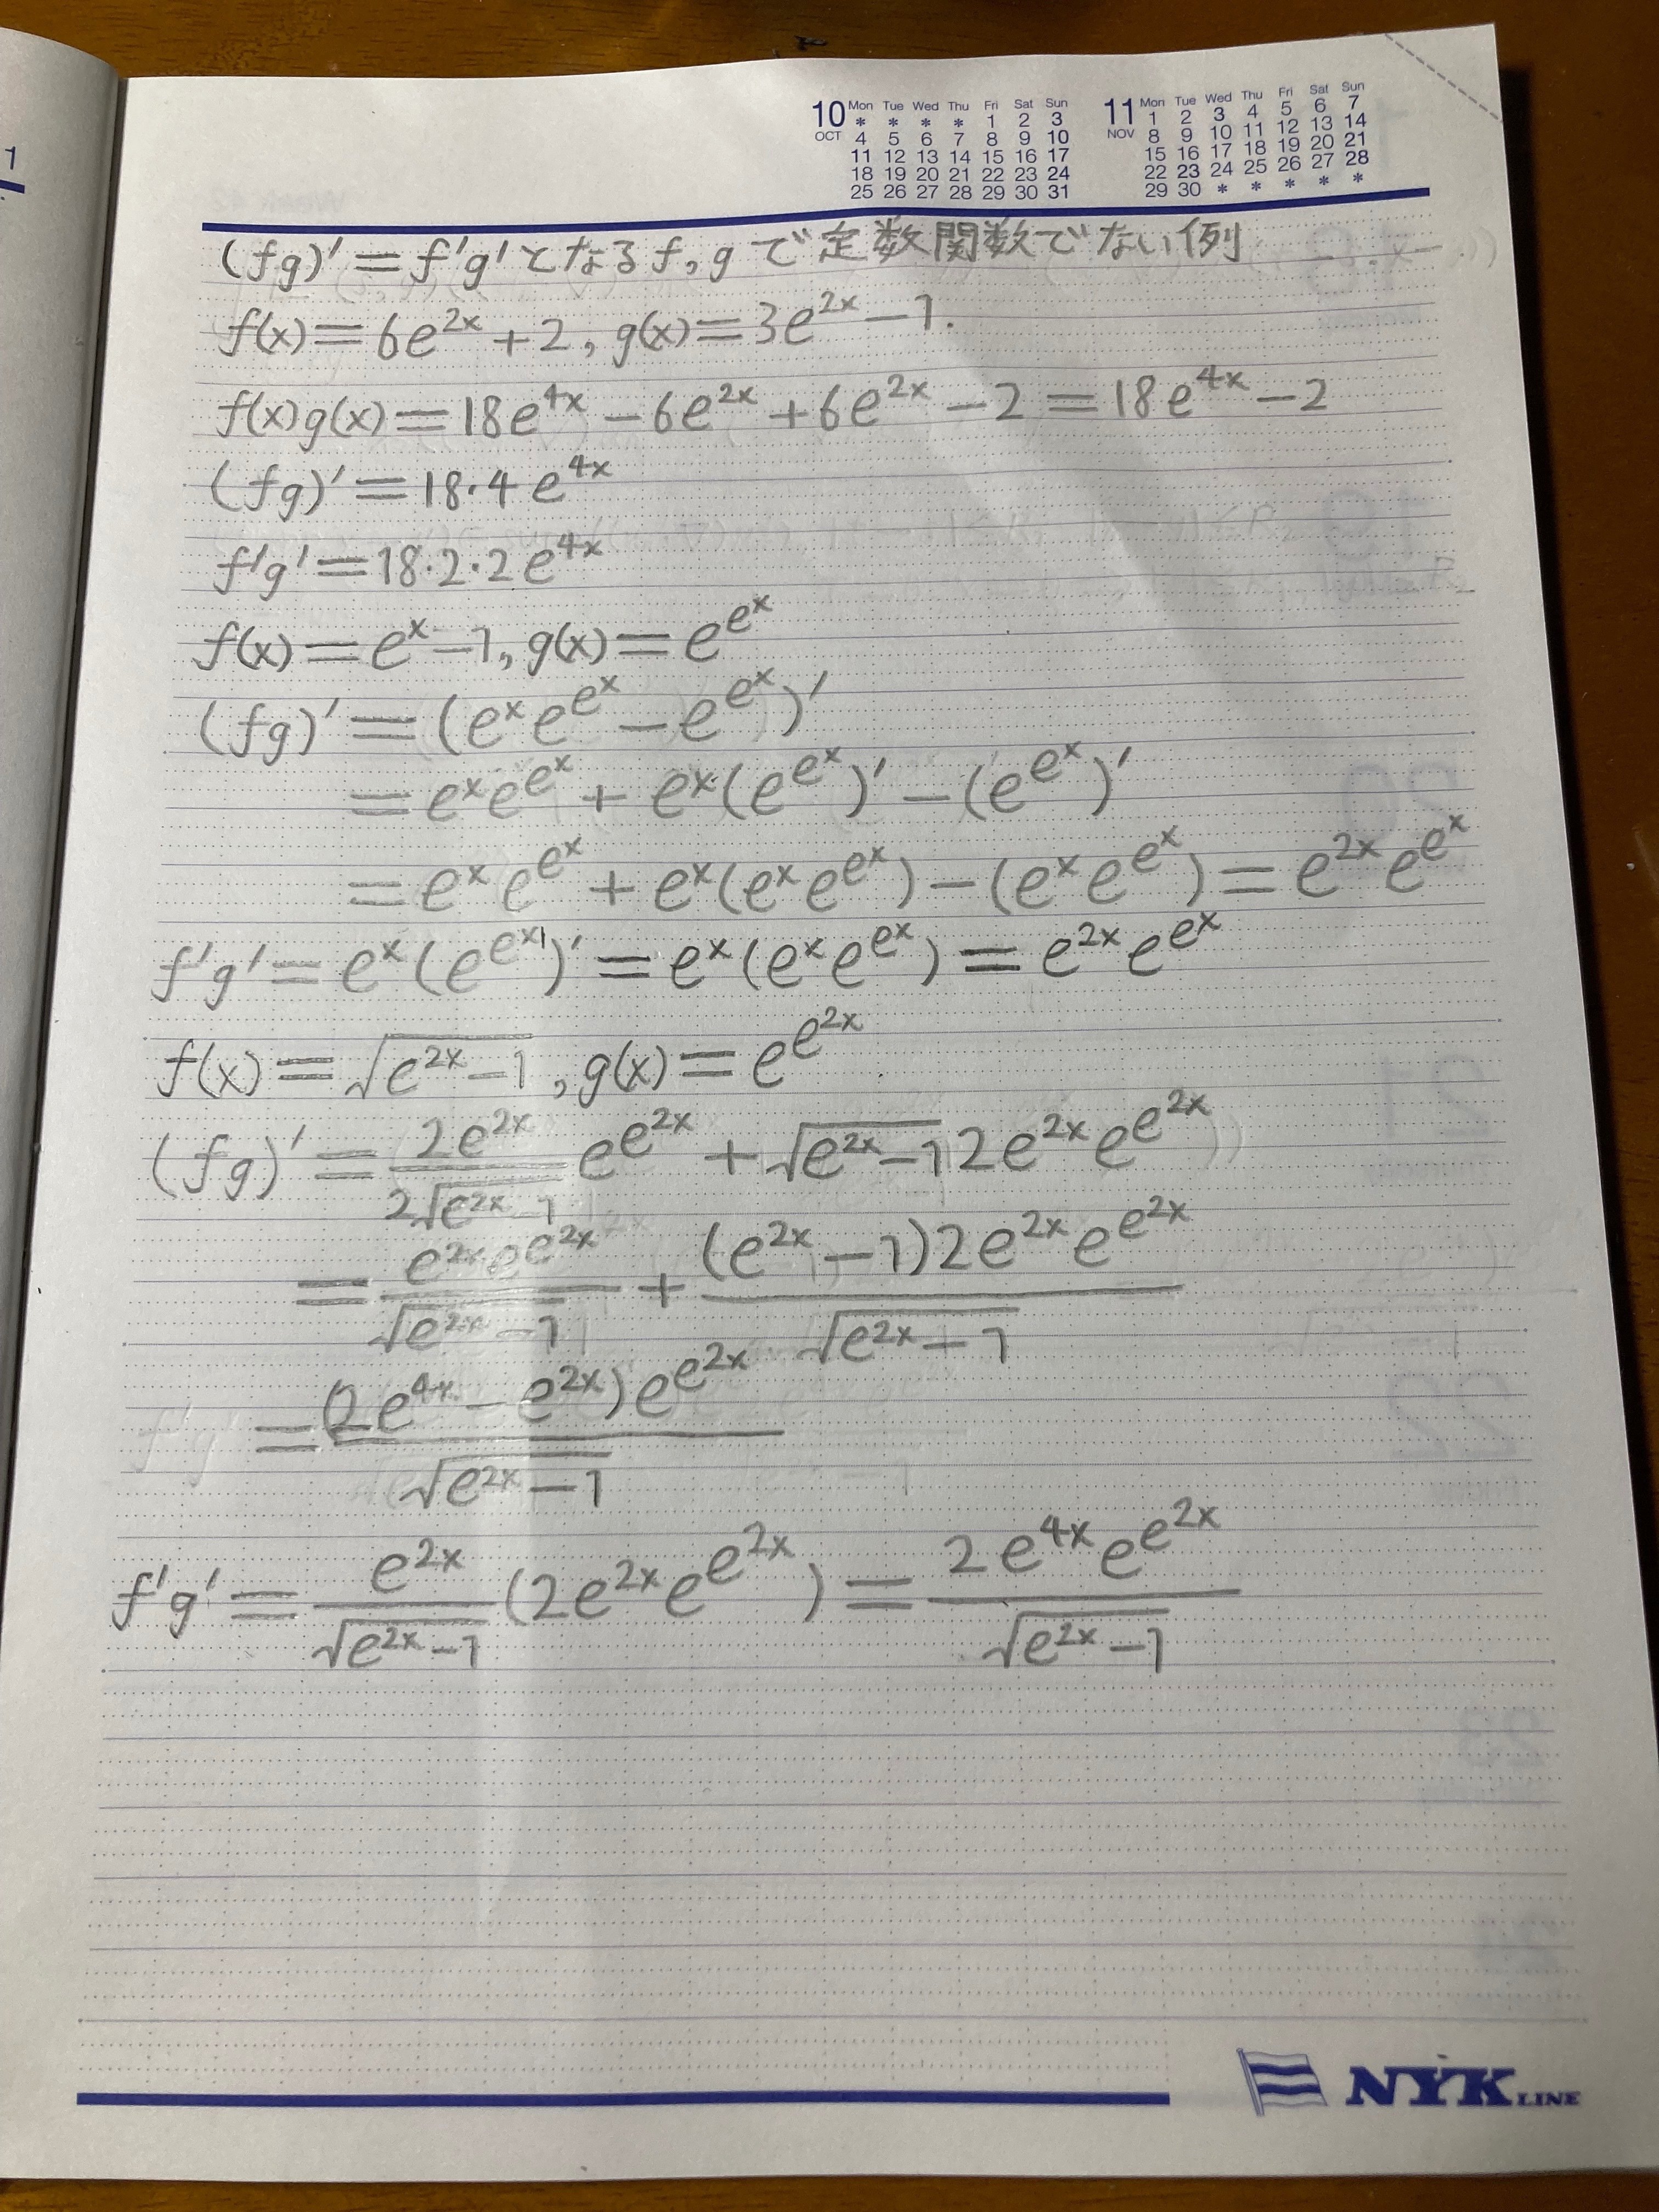 1
10 Mon Tue Wed Thu Fri Sat Sun
OCT * * * * 1 2 3
4 5 6 7 8 9 10
11 12 13 14 15 16 17
18 19 20 21 22 23 24
25 26 27 28 29 30 31
11 Mon Tue Wed Thu Fri Sat Sun
NOV 1 2 3 4 5 6 7
8 9 10 11 12 13 14
15 16 17 18 19 20 21
22 23 24 25 26 27 28
29 30 * * * * *
(fg)' = f'g' となる f, g で定数関数でない例
f(x) = 6e^{2x} + 2, g(x) = 3e^{2x} - 1.
f(x)g(x) = 18e^{4x} - 6e^{2x} + 6e^{2x} - 2 = 18e^{4x} - 2
(fg)' = 18・4 e^{4x}
f'g' = 18・2・2 e^{4x}
f(x) = e^x - 1, g(x) = e^{e^x}
(fg)' = (e^x e^{e^x} - e^{e^x})'
= e^x e^{e^x} + e^x (e^{e^x})' - (e^{e^x})'
= e^x e^{e^x} + e^x (e^x e^{e^x}) - (e^x e^{e^x}) = e^{2x} e^{e^x}
f'g' = e^x (e^{e^x})' = e^x (e^x e^{e^x}) = e^{2x} e^{e^x}
f(x) = √(e^{2x} - 1), g(x) = e^{e^{2x}}
(fg)' = 2e^{2x} / (2√(e^{2x} - 1)) e^{e^{2x}} + √(e^{2x} - 1) 2e^{2x} e^{e^{2x}}
= e^{2x} e^{e^{2x}} / √(e^{2x} - 1) + (e^{2x} - 1) 2e^{2x} e^{e^{2x}} / √(e^{2x} - 1)
= (2e^{4x} - e^{2x}) e^{e^{2x}} / √(e^{2x} - 1)
f'g' = e^{2x} / √(e^{2x} - 1) (2e^{2x} e^{e^{2x}}) = 2e^{4x} e^{e^{2x}} / √(e^{2x} - 1)
NYK LINE